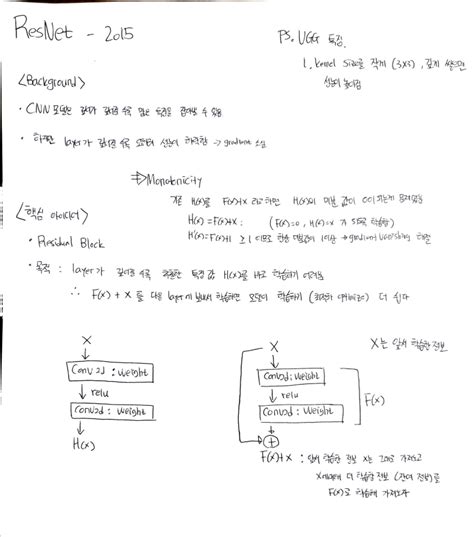 ResNet - 2015
PS. UGG 특징.
1. kernel size를 작게 (3x3), 깊게 쌓으면
성능이 높아짐
<Background>
• CNN 모델은 깊이가 깊어질 수록 많은 특징을 잡아낼 수 있음
• 하지만 layer가 깊어질 수록 오히려 성능이 하락함 → gradient 소실
⇒ Monotonicity
기존 H(x)를 F(x)+x 라고 하면 H(x)의 미분 값이 0이 되는게
H(x) = F(x)+x : (F(x)=0, H(x)=x 가 되도록 학습함)
H'(x) = F'(x)+1 ≥ 1 이므로 학습 미분값이 1이상 → gradient vanishing 해결
<핵심 아이디어>
• Residual Block
• 목적 : layer가 깊어질 수록 복잡한 특징 값 H(x)를 바로 학습하기 어려움
∴ F(x) + x 를 다음 layer에 보내서 학습하면 모델이 학습하기 (최적화 optimize) 더 쉽다
X
Conv2d : Weight
relu
Conv2d : Weight
H(x)
X
X는 앞서 학습한 정보
Conv2d : Weight
relu
F(x)
Conv2d : Weight
+
F(x)+x : 앞서 학습한 정보 x는 그대로 가져오고
x에 더 학습할 정보 (잔여 정보)를
F(x)로 학습해 가져오자